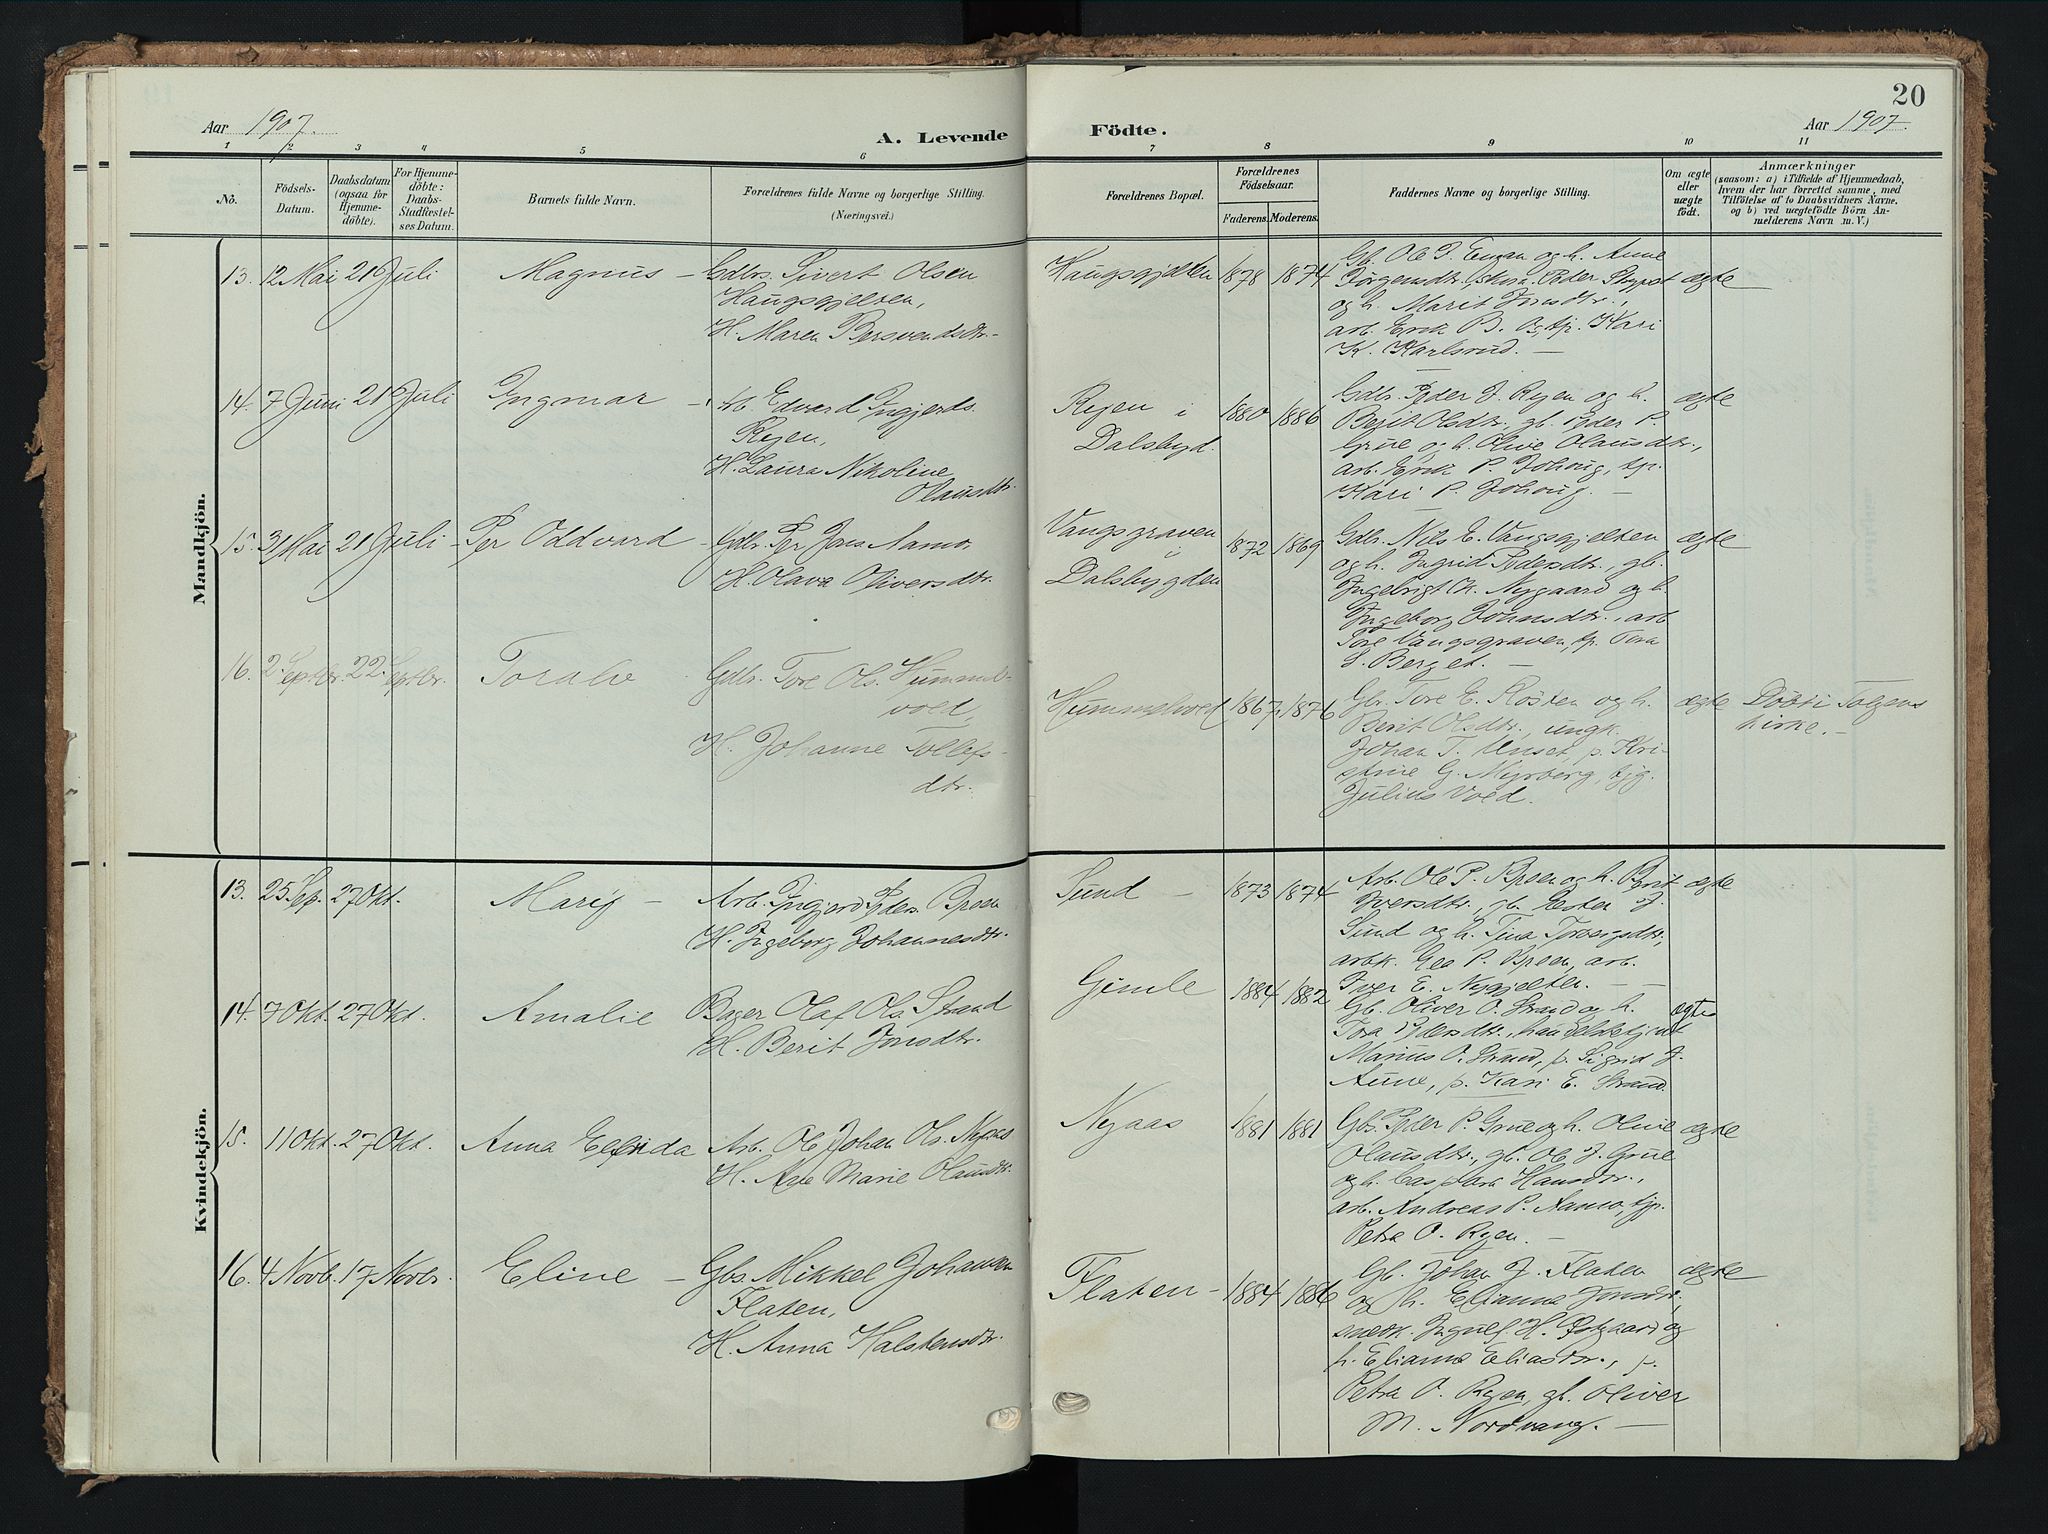 20
Aar 1907.
A. Levende
Födte.
Aar 1907.
1 2 3 4 5 6 7 8 9 10 11
No.
Födsels-
Datum.
Daabsdatum
(ogsaa for
Hjemme-
döbte).
For Hjemme-
döbte:
Daabs-
Stadfæstel-
ses Datum.
Barnets fulde Navn.
Forældrenes fulde Navne og borgerlige Stilling.
(Næringsvei.)
Forældrenes Bopæl.
Forældrenes
Födselsaar.
Faderens.
Moderens.
Faddernes Navne og borgerlige Stilling.
Om ægte
eller
uægte
födt.
Anmærkninger
(saasom: a) i Tilfælde af Hjemmedaab,
hvem der har forrettet samme, med
Tilföielse af to Daabsvidners Navne,
og b) ved uægtefödte Börn An-
melderens Navn m. V.)
Mandkjön.
13. 12 Mai 21 Juli Magnus – Gdbr. Sivert Olsen
Haugsgjelten,
H. Maren Bersvendsdtr.
Haugsgjelten 1878 1874
Gb. Ole J. Eman og h. Anne
Jörgensdtr. Peder
og h. Marit Jonsdtr.,
arb. Erik B. tp. Kari
K. Karlsrud. –
ægte
14. 7 Juni 21 Juli Ingmar – Arb. Edvard Ingjerds.
Ryen,
H. Laura Nikoline
Olausdtr.
Ryen i
Dalsbygd.
1880 1886
Gdbr. Peder J. Ryen og h.
Berit Olsdtr., gb. Peder P.
Grue og h. Olive Olausdtr.,
arb. Erik P. Johoug, tp.
Kari P. Johoug. –
ægte
15. 31 Mai 21 Juli – Per Oddvard – Gdbr. Per Jons. Aamo,
H. Olava Oliversdtr.
Vangsgraven
i
Dalsbygden
1872 1869
Gdbr. Nils E. Vangsgjelten
og h. Ingrid Pedersdtr., gb.
Ingebrigt K. Nygaard og h.
Ingeborg Johnsdtr., arb.
Tore Vangsgraven, tp. Tora
S. Berget. –
ægte
16. 2 Septbr. 22 Septbr. Toralv Gdbr. Tore Ols. Hummel-
vold,
H. Johanne Tollefs-
dtr.
Hummelvold 1867 1876
Gb. Tore E. Kosten og h.
Berit Olsdtr., ungk.
Johan T. Unset, p. Kri-
stine G. Myrberg, tjg.
Julius Vold.
ægte
Döbt i Tolgens
kirke. –
Kvindekjön.
13. 25 Sep. 27 Okt. Marij – Arb. Ingjerd Peders. Broen
H. Ingeborg Johannesdtr.
Sund – 1873 1874
Arb. Ole P. Broen og h. Berit
Iversdtr., gb. Esten J.
Sund og h. Tina Torbergsdtr.,
arbk. Eli P. Broen, arb.
Iver E. Nygjelten. –
ægte
14. 7 Okt. 27 Okt. Amalie Bager Olaf Ols. Strand
H. Berit Jonsdtr.
Gimle 1884 1882
Gb. Oliver O. Strand og h.
Tora Pedersdtr., handelsbetjent
Marius O. Strand, p. Sigrid J.
Aune, p. Kari E. Strand.
ægte
15. 11 Okt. 27 Okt. Anna Elfrida Arb. Ole Johan Ols. Nyaas
H. Marie Olausdtr.
Nyaas 1881 1881
Gbr. Peder P. Grue og h. Olive
Olausdtr., gb. Ole J. Grue
og h. Caspara Hansdtr.,
arb. Andreas P. Aamo, tjp.
Petra O. Ryen. –
ægte
16. 4 Novb. 17 Novbr. Eline – Gbs. Mikkel Johansen
Flaten,
H. Anna Halstensdtr.
Flaten – 1884 1886
Gb. Johan J. Flaten
og h. Elianna Jonsdtr.,
snedk. Ingulf H. Östgaard og
h. Elianna Eliasdtr., p.
Petra O. Ryen, gb. Oliver
M. Nordvang. –
ægte